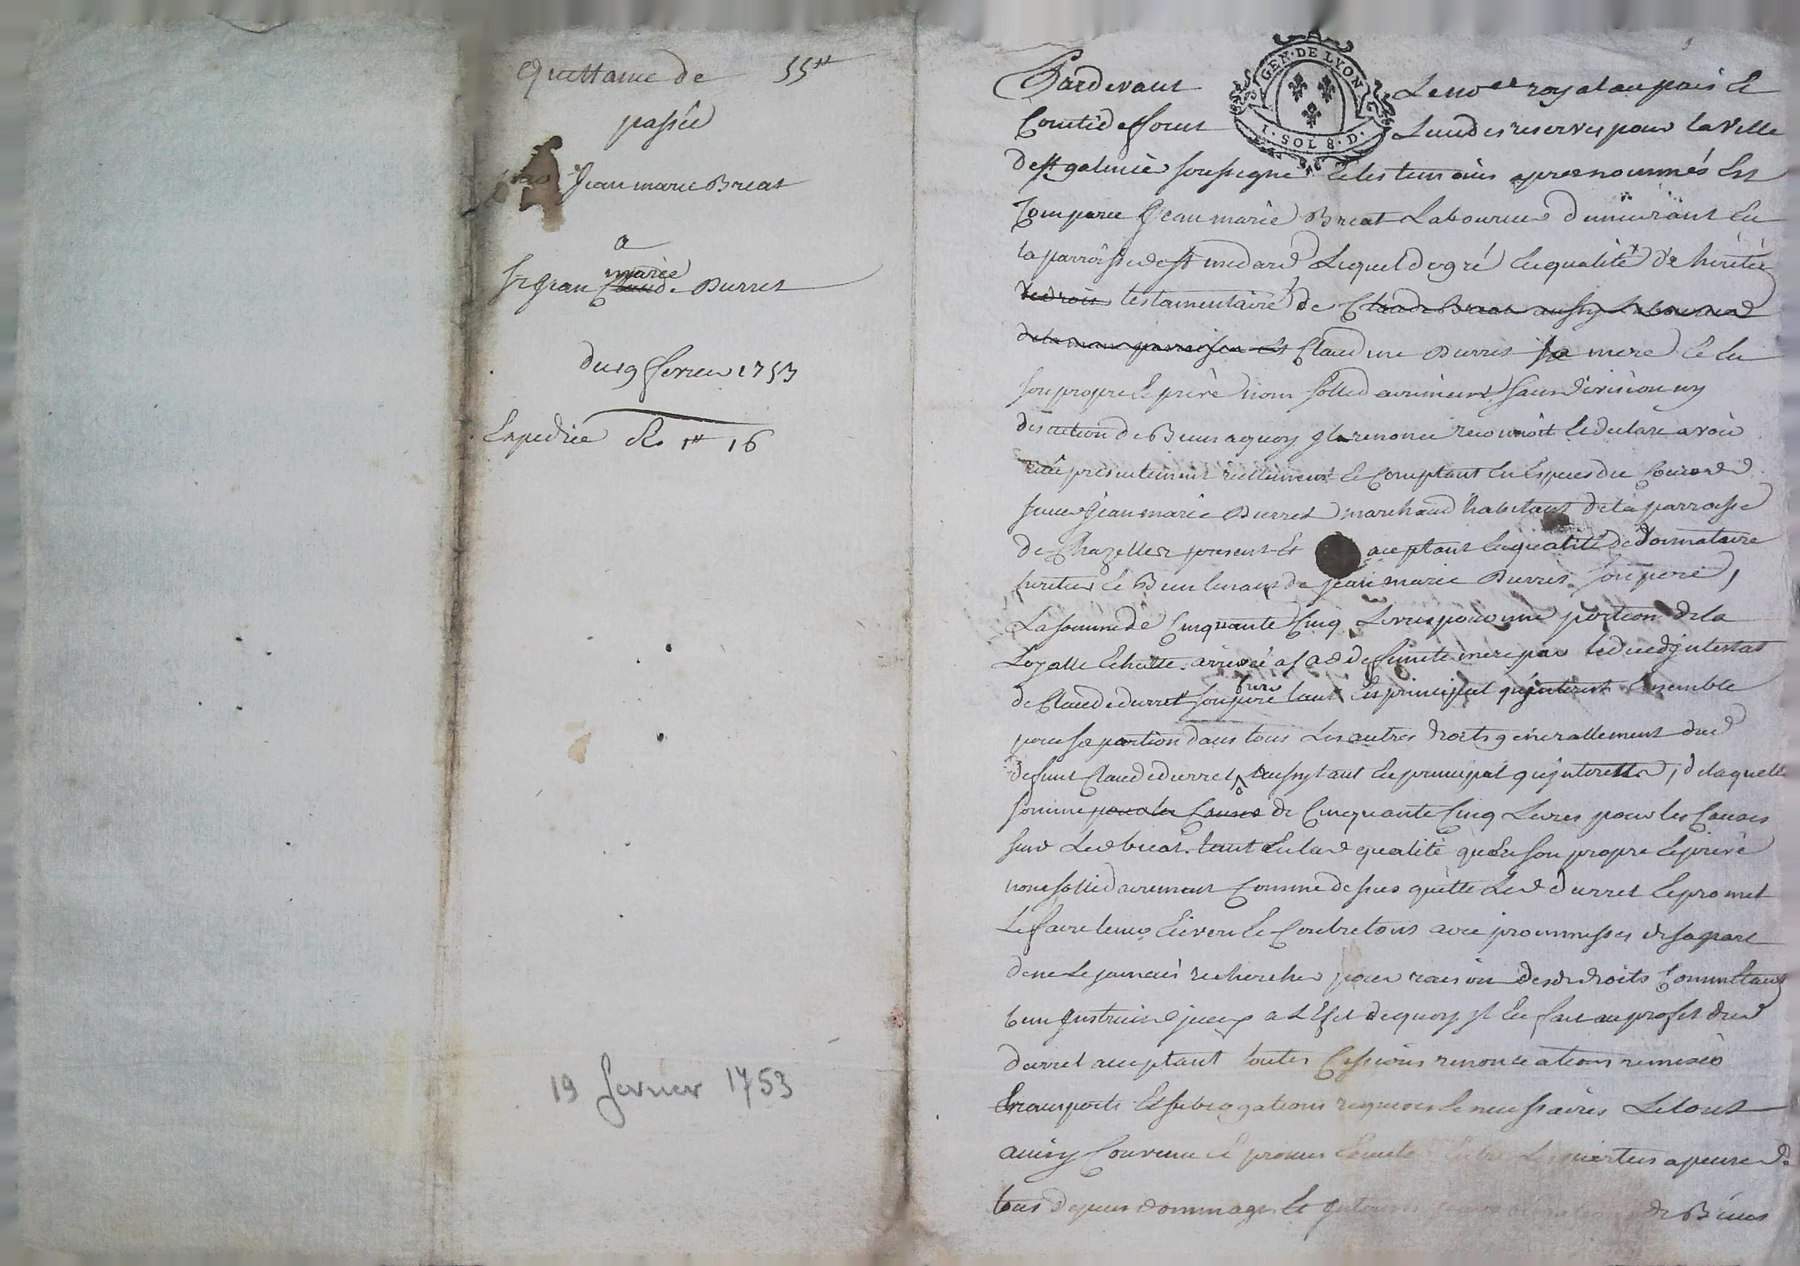 Quittance de 55tt
passée
Jean marie Breat
a
marie
Sr Jean Claude Durret
du 19 fevrier 1753
Expediée R 1tt 16
19 fevrier 1753
GEN·DE LYON
1·SOL 8·D·
Pardevant Le no.re royal au païs Et
Comté de fores Lun des reservés pour la Ville
de st galmier soussigné Et les temoins apres nommés Est
Comparu Jean marie Breat Laboureur demeurant En
la parroisse de st medard Lequel de gré En qualité de heritier
testamentaire de Claude Breat aussy Laboureur
de la meme parroisse et Claudine Durret sa mere Et En
son propre Et privé nom sollidairement sans division ny
discution de Biens a quoy Il renonce reconnoit Et declare avoir
reçu presentement reellement Et Comptant En Especes du Cours de
sieur Jean marie Durret marchand habitant de la parroisse
de Chazelles present Et acceptant En qualité de donnataire
heritier Et Bien tenant de Jean marie Durret son pere,
La somme de Cinquante Cinq Livres pour une portion de la
Loyalle Echutte arrivée a sa de deffunte mere par le deced jntestat
de Claude durret son frere tant En principal qu'jnterest Ensemble
pour sa portion dans tous Les autres droits generallement dud
defunt Claude durret aussy tant En principal qu'jnterests, de laquelle
somme pour les Causes de Cinquante Cinq Livres pour les Causes
sus.d Led breat tant En lad qualité qu'En son propre Et privé
nom sollidairement Comme dessus quitte Led durret Et promet
Le faire tenir quitte Envers Et Contre tous avec promesses de sa part
de ne Le jamais rechercher pour raison desd droits
a L'Efet de quoy Il En fait au profit dud
durret acceptant toutes Cessions renonceations remises
transports Et subrogations requises Et necessaires Le tout
ainsy Convenu Et promis Entre Les parties a peine de
tous depens dommages Et jnterests de Biens